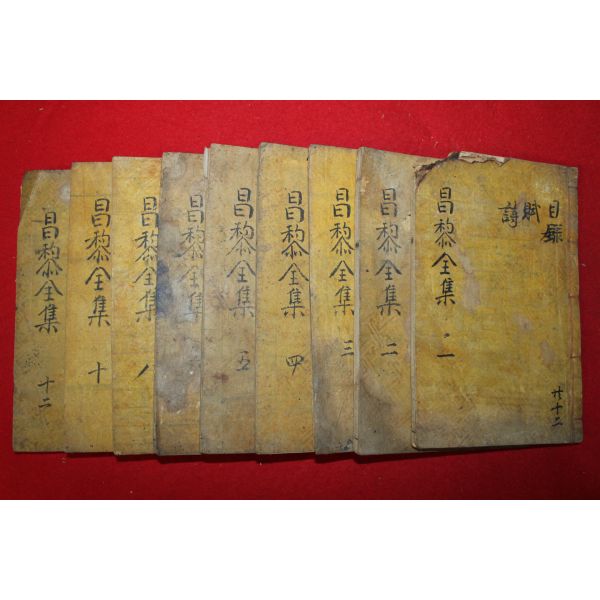 目錄
賦
詩
共十二
昌黎全集 一
昌黎全集 二
昌黎全集 三
昌黎全集 四
昌黎全集 五
昌黎
昌黎全集 八
昌黎全集 十
昌黎全集 十二